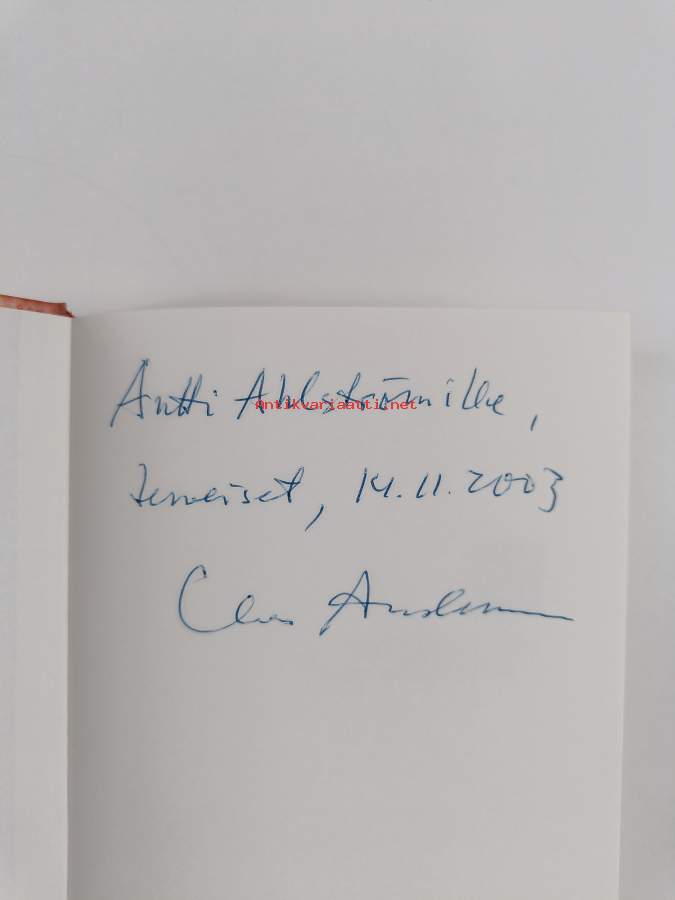 Antti Ahlströmille,
Antikvariaatti.net
terveiset, 14.11.2003
Claes Andersson